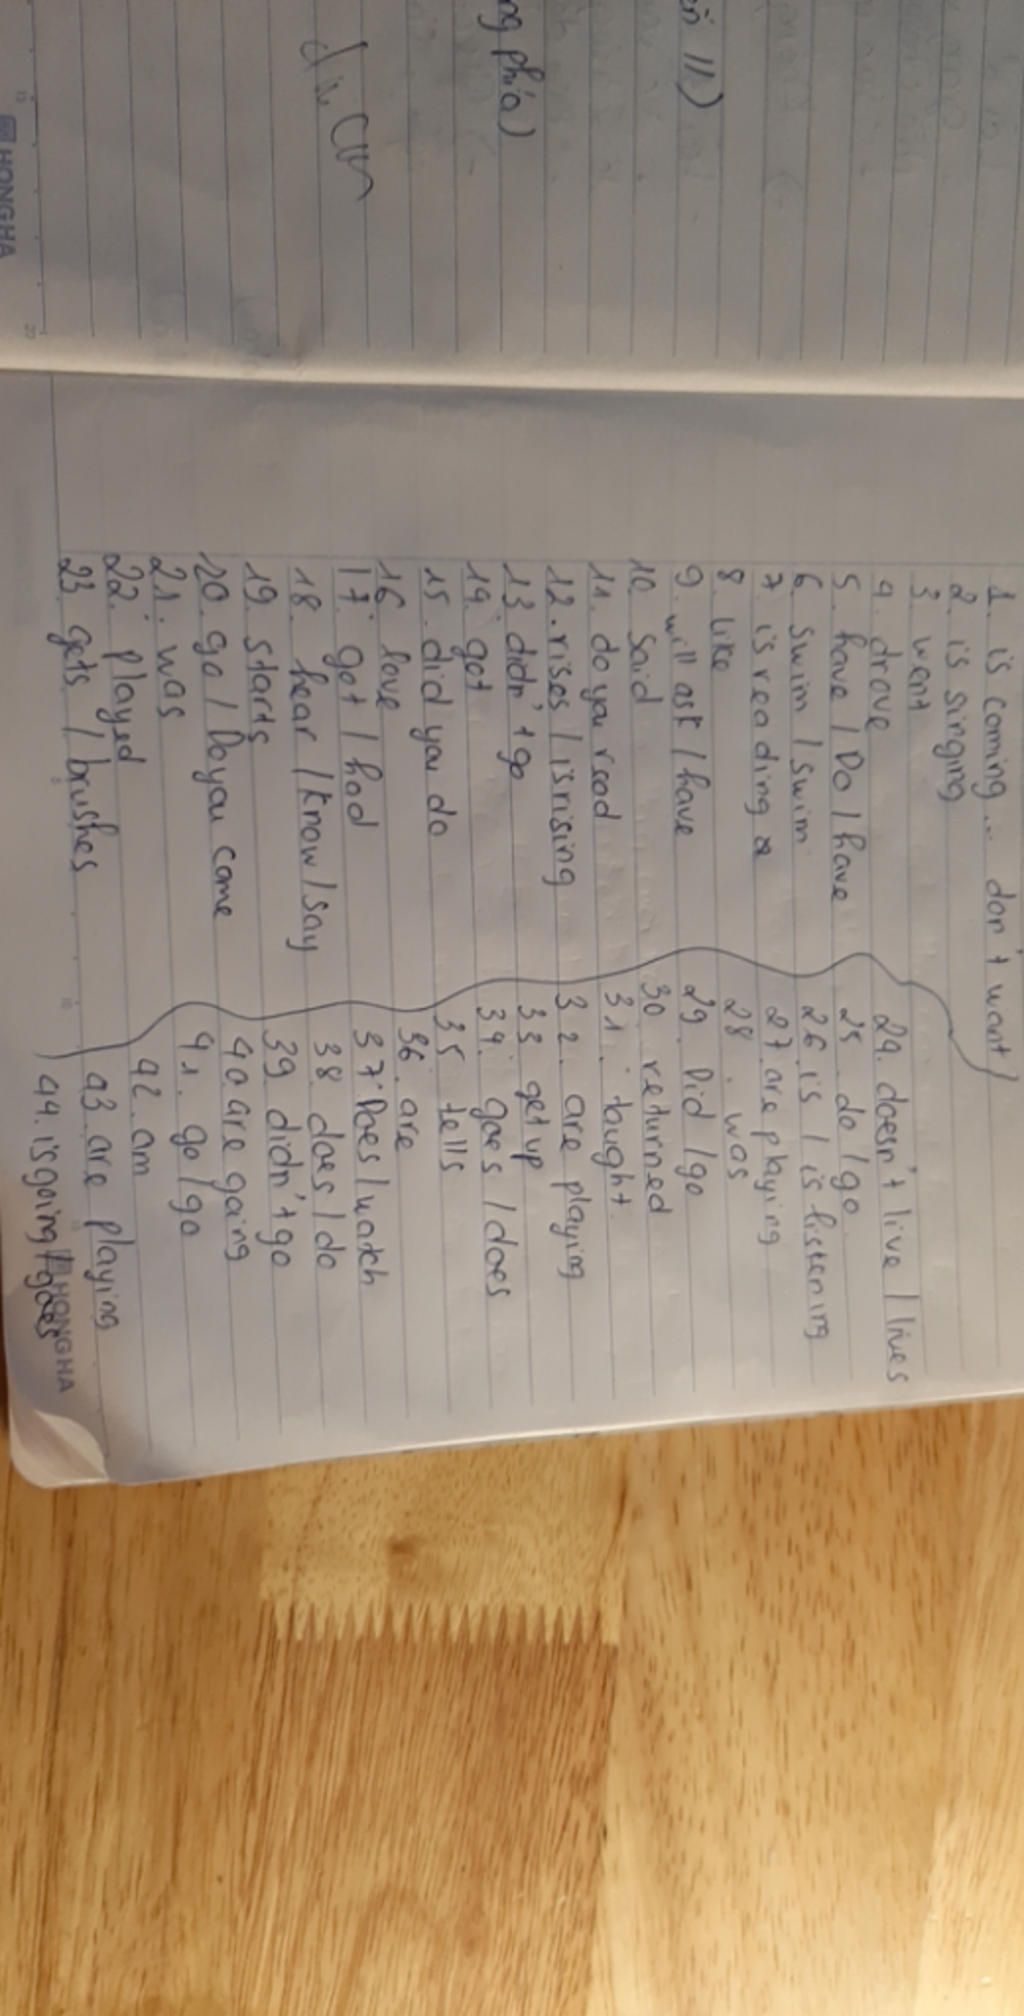 ên 11)
ng phía)
HONGHA
1. is coming... don't want
2. is singing
3 went
4. drove
5. have / Do / have
6. swim / swim
7 is reading
8 like
9 will ask / have
10. said
11. do you read
12. rises / is rising
13 didn't go
14. got
15. did you do
16 love
17. got / had
18. hear / know / say
19. starts
20. go / Do you come
21. was
22. played
23. gets / brushes
24. doesn't live / lives
25. do / go
26. is / is listening
27. are playing
28. was
29. Did / go
30. returned
31. taught
32. are playing
33 get up
34. goes / does
35 tells
36. are
37. Does / watch
38 does / do
39 didn't go
40 are going
41. go / go
42. am
43. are playing
44. is going / goes
HONGHA